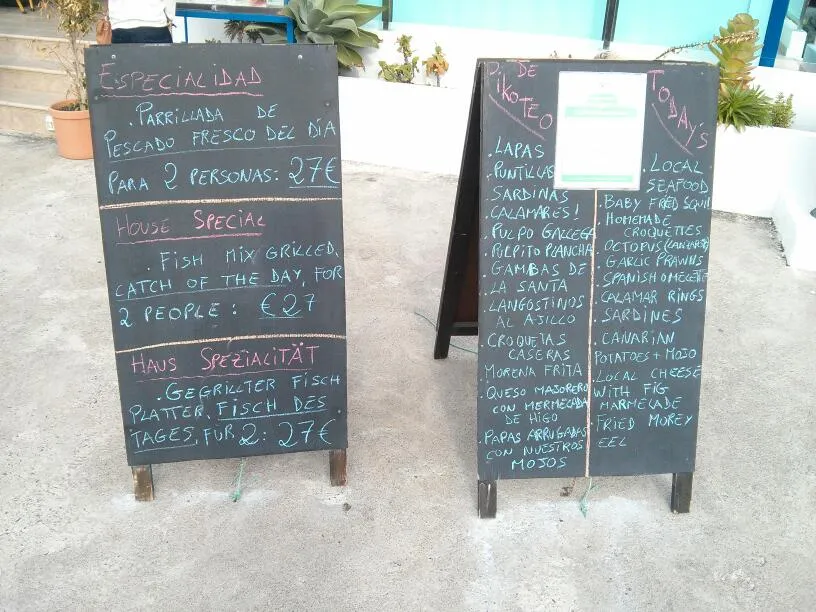 ESPECIALIDAD
. PARRILLADA DE
PESCADO FRESCO DEL DÍA
PARA 2 PERSONAS: 27€
HOUSE SPECIAL
. FISH MIX GRILLED,
CATCH OF THE DAY, FOR
2 PEOPLE: €27
HAUS SPEZIALITÄT
. GEGRILLTER FISCH
PLATTER. FISCH DES
TAGES, FÜR 2: 27€
DE
PIKOTEO
. LAPAS
. PUNTILLAS
SARDINAS
. CALAMARES!
. PULPO GALLEGA
. PULPITO PLANCHA
. GAMBAS DE
LA SANTA
LANGOSTINOS
AL AJILLO
. CROQUETAS
CASERAS
MORENA FRITA
. QUESO MAJORERO
CON MERMELADA
DE HIGO
. PAPAS ARRUGADAS
CON NUESTROS
MOJOS
TODAYS
. LOCAL
SEAFOOD
. BABY FRIED SQUID
HOMEMADE
CROQUETTES
. OCTOPUS
. GARLIC PRAWNS
. SPANISH OMELETTE
. CALAMAR RINGS
. SARDINES
. CANARIAN
POTATOES + MOJO
. LOCAL CHEESE
WITH FIG
MARMELADE
. FRIED MOREY
EEL